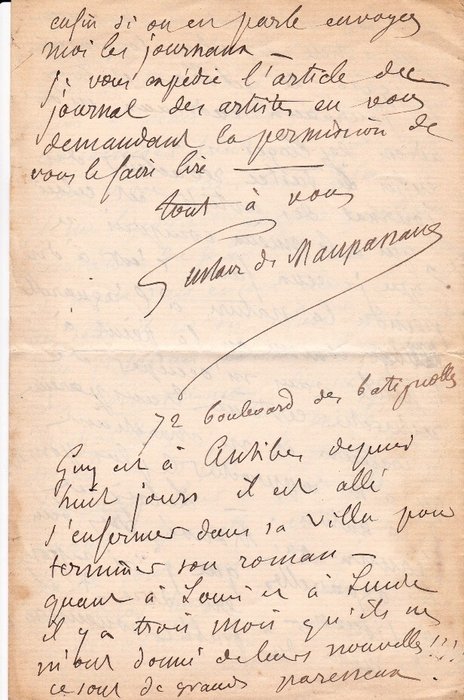 enfin si on en parle envoyez
moi les journaux —
je vous expédie l'article du
journal des artistes en vous
demandant la permission de
vous le faire lire —
tout à vous
Gustave de Maupassant
72 boulevard des batignolles
Guy est à Antibes depuis
huit jours il est allé
s'enfermer dans sa villa pour
terminer son roman —
quant à Louis et à Lucie
il y a trois mois qu'ils ne
m'ont donné de leurs nouvelles !!!
ce sont de grands paresseux.